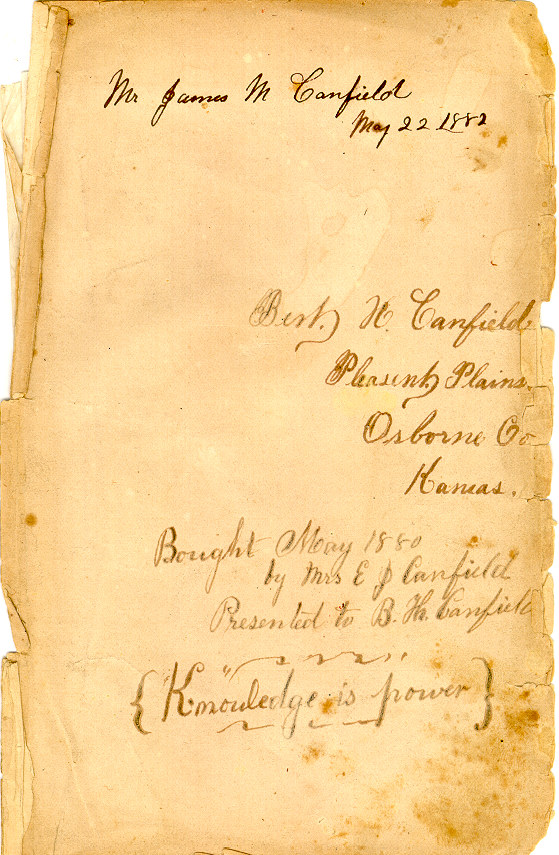 Mr James M Canfield
May 22 1882
Bert. H. Canfield
Pleasent Plains.
Osborne Co
Kansas.
Bought May 1880
by Mrs E J Canfield
Presented to B. H. Canfield
{ Knowledge is power }